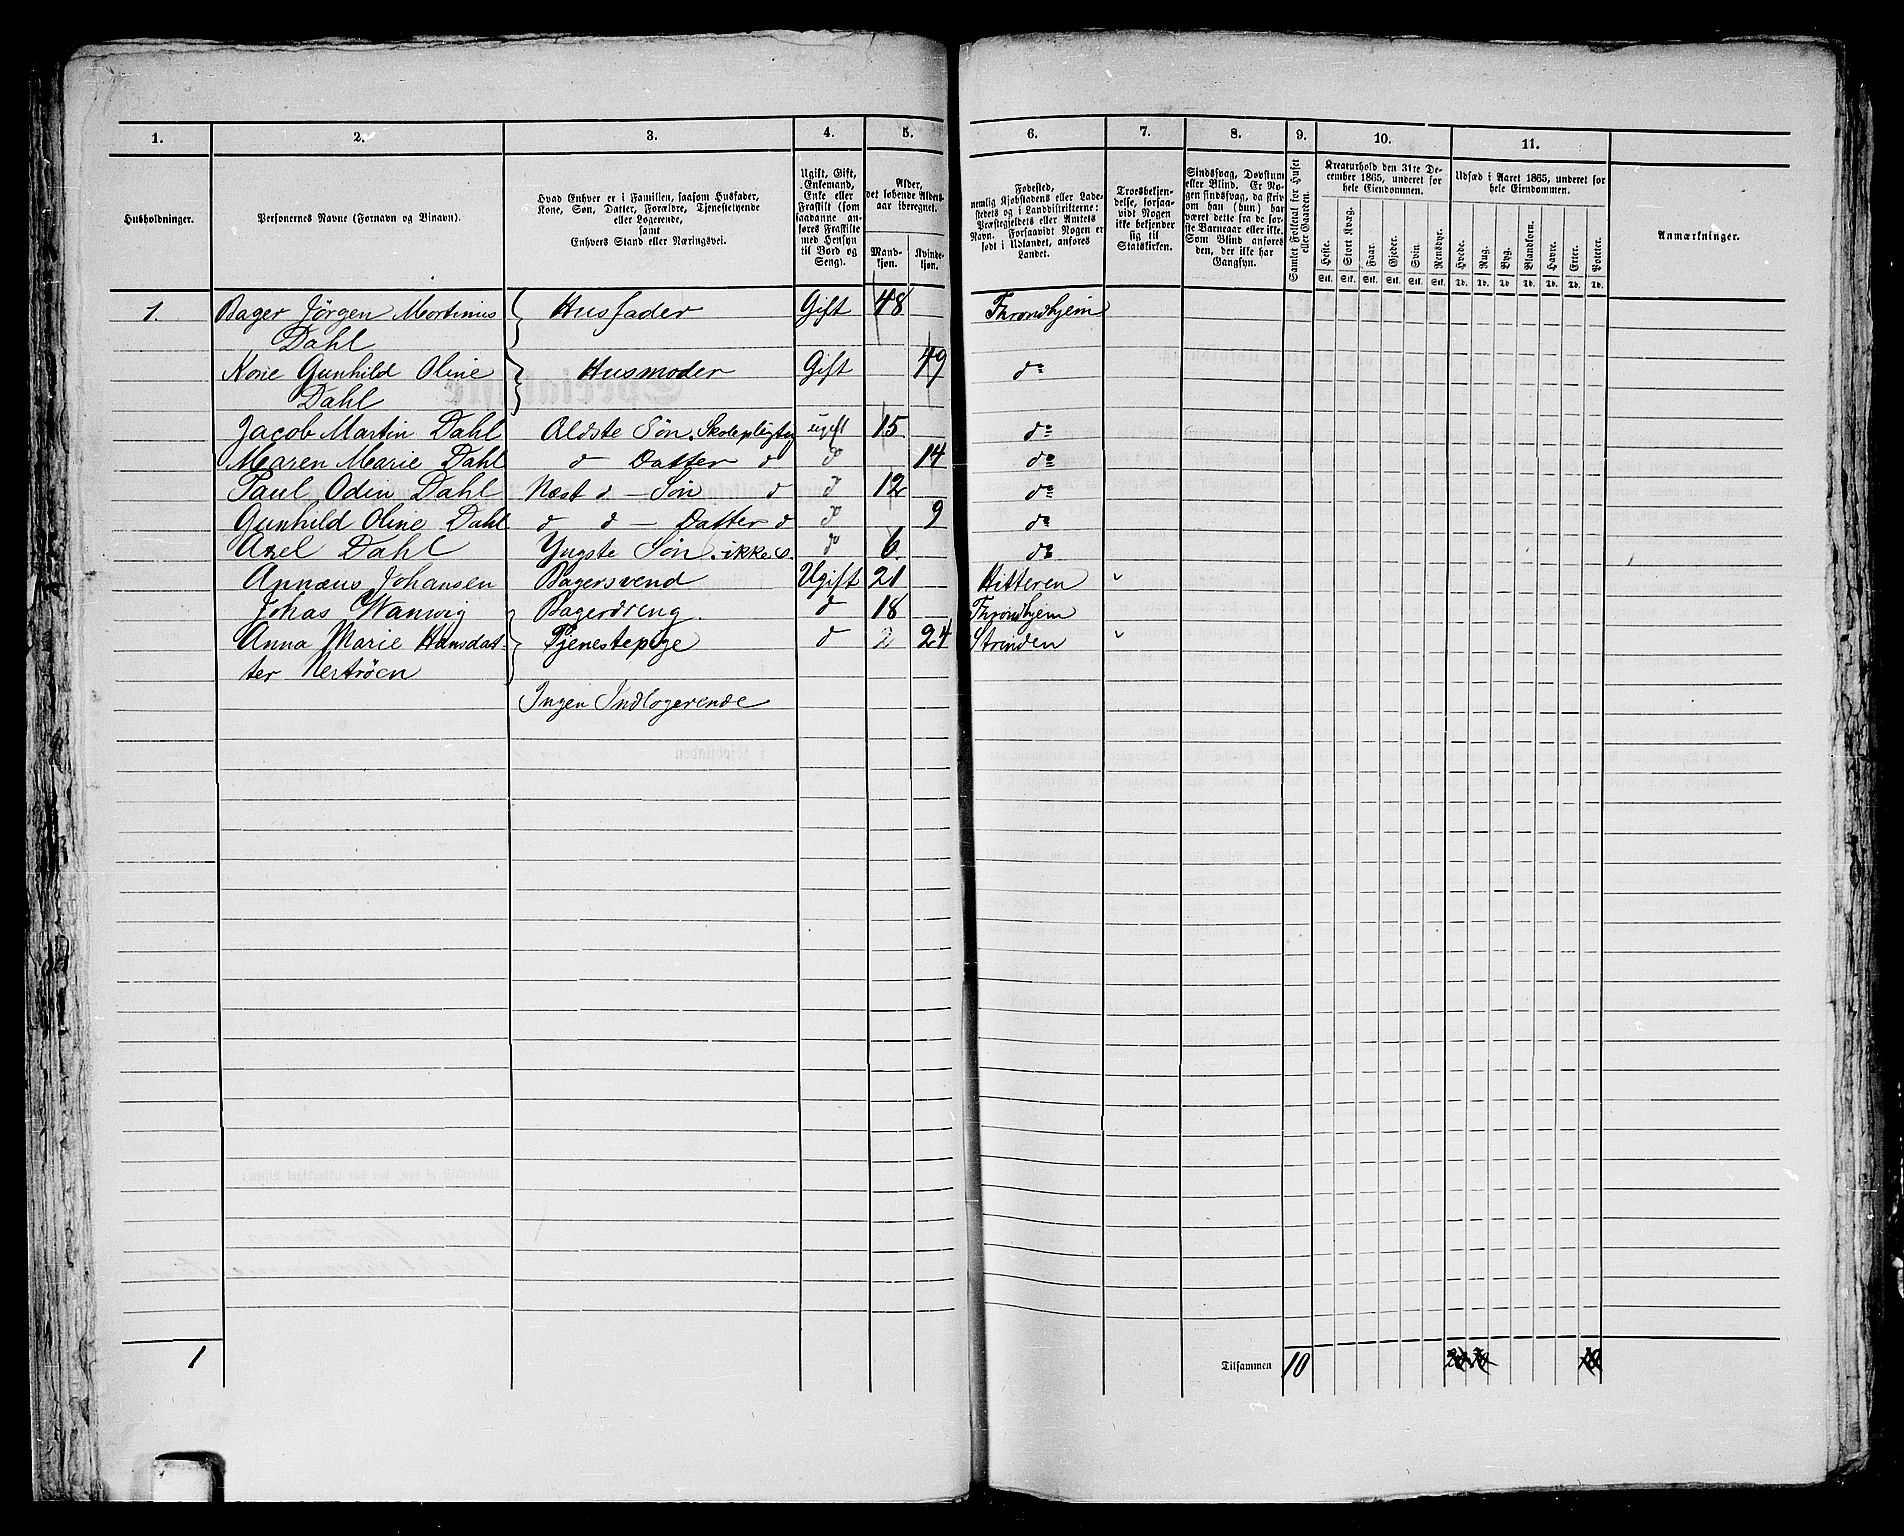 1. 2. 3. 4. 5. 6. 7. 8. 9. 10. 11.
Husholdninger.
Personernes Navne (Fornavn og Binavn).
Hvad Enhver er i Familien, saasom Husfader,
Kone, Søn, Datter, Forældre, Tjenestetyende
eller Logerende,
samt
Enhvers Stand eller Næringsvei.
Ugift, Gift,
Enkemand,
Enke eller
Fraskilt (som
saadanne an-
føres Fraskilte
med Hensyn
til Bord og
Seng).
Alder,
det løbende Alders-
aar iberegnet.
Mand-
kjøn.
Kvinde-
kjøn.
Fødested,
nemlig Kjøbstadens eller Lade-
stedets og i Landdistrikterne:
Præstegjeldets eller Amtets
Navn. Forsaavidt Nogen er
født i Udlandet, anføres
Landet.
Troesbekjen-
delse, forsaa-
vidt Nogen
ikke bekjender
sig til
Statskirken.
Sindssvag, Døvstum
eller Blind. Er No-
gen sindssvag, da skriv
om han (hun) har
været dette fra de før-
ste Barneaar eller ikke.
Som Blind anføres
den, der ikke har
Gangsyn.
Samlet Folketal for Huset
eller Gaarden.
Kreaturhold den 31te De-
cember 1865, underet for
hele Eiendommen.
Heste.
Stort Kvæg.
Faar.
Gjeder.
Svin.
Rensdyr.
Stk. Stk. Stk. Stk. Stk. Stk.
Udsæd i Aaret 1865, underet for
hele Eiendommen.
Hvede.
Rug.
Byg.
Blandkorn.
Havre.
Erter.
Poteter.
Td. Td. Td. Td. Td. Td. Td.
Anmærkninger.
1. Bager Jörgen Mortinus Husfader Gift 48 Throndhjem
Dahl
Kone Gunhild Oline Husmoder Gift 49 do
Dahl
Jacob Martin Dahl Ældste Søn. Skolepligtig ugift 15 do
Maren Marie Dahl d Datter d d 14 do
Paul Odin Dahl Næst d – Søn d d 12 do
Gunhild Oline Dahl d d – Datter d d 9 do
Axel Dahl Yngste Søn. ikke s. d 6 do
Annæus Johansen Bagersvend Ugift 21 Hitteren "
Johas Wanvig Bagerdreng. d 18 Throndhjem
Anna Marie Hansdat- Tjenestepige d 2 24 Strinden "
ter Nertröen
Ingen Indlogerende
1 Tilsammen 10